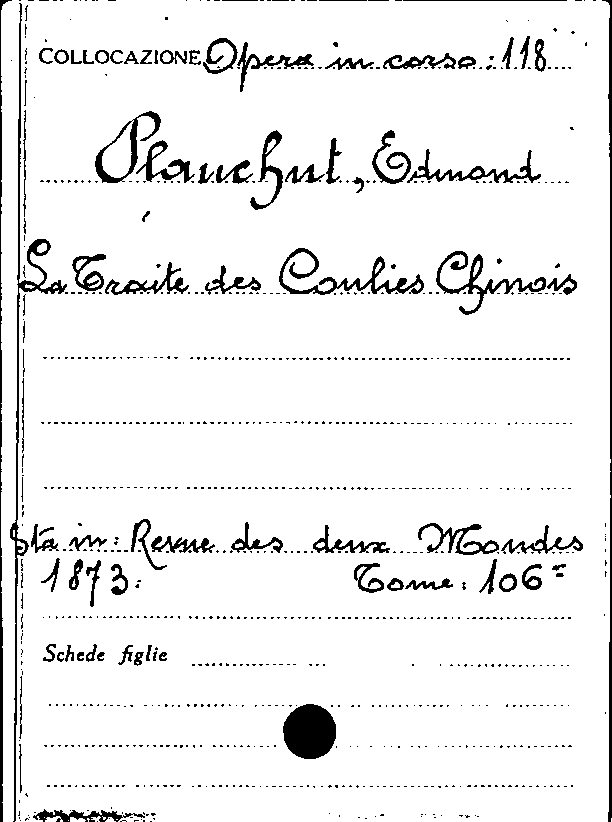 COLLOCAZIONE Opera in corso: 118
Plauchut, Edmond
La Traite des Coulies Chinois
Sta in: Revue des deux Mondes
1873. Tome: 106=
Schede figlie